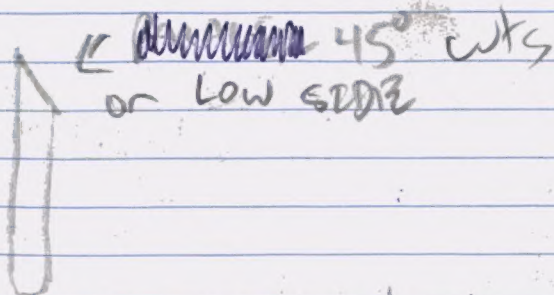 45° cuts
or Low SIDE